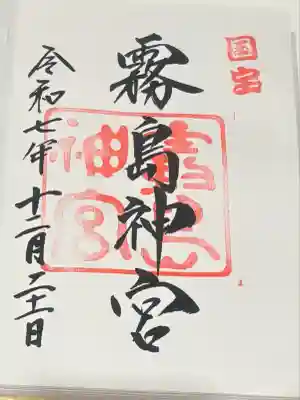 国宝
霧島神宮
霧島神宮
令和七年十二月二十一日